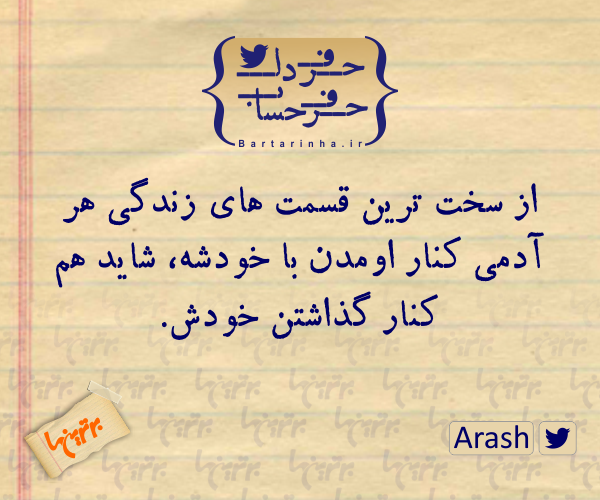 حرف دل
حرف حساب
Bartarinha.ir
از سخت ترین قسمت های زندگی هر
آدمی کنار اومدن با خودشه، شاید هم
کنار گذاشتن خودش.
برترین‌ها
Arash